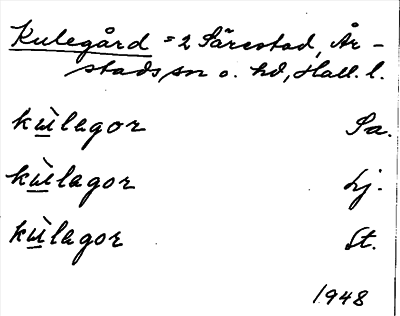 Kulegård = 2 Särestad, År-
stads sn o. hd, Hall. l.
kùlagor Sa.
kùlagor Lj.
kùlagor St.
1948